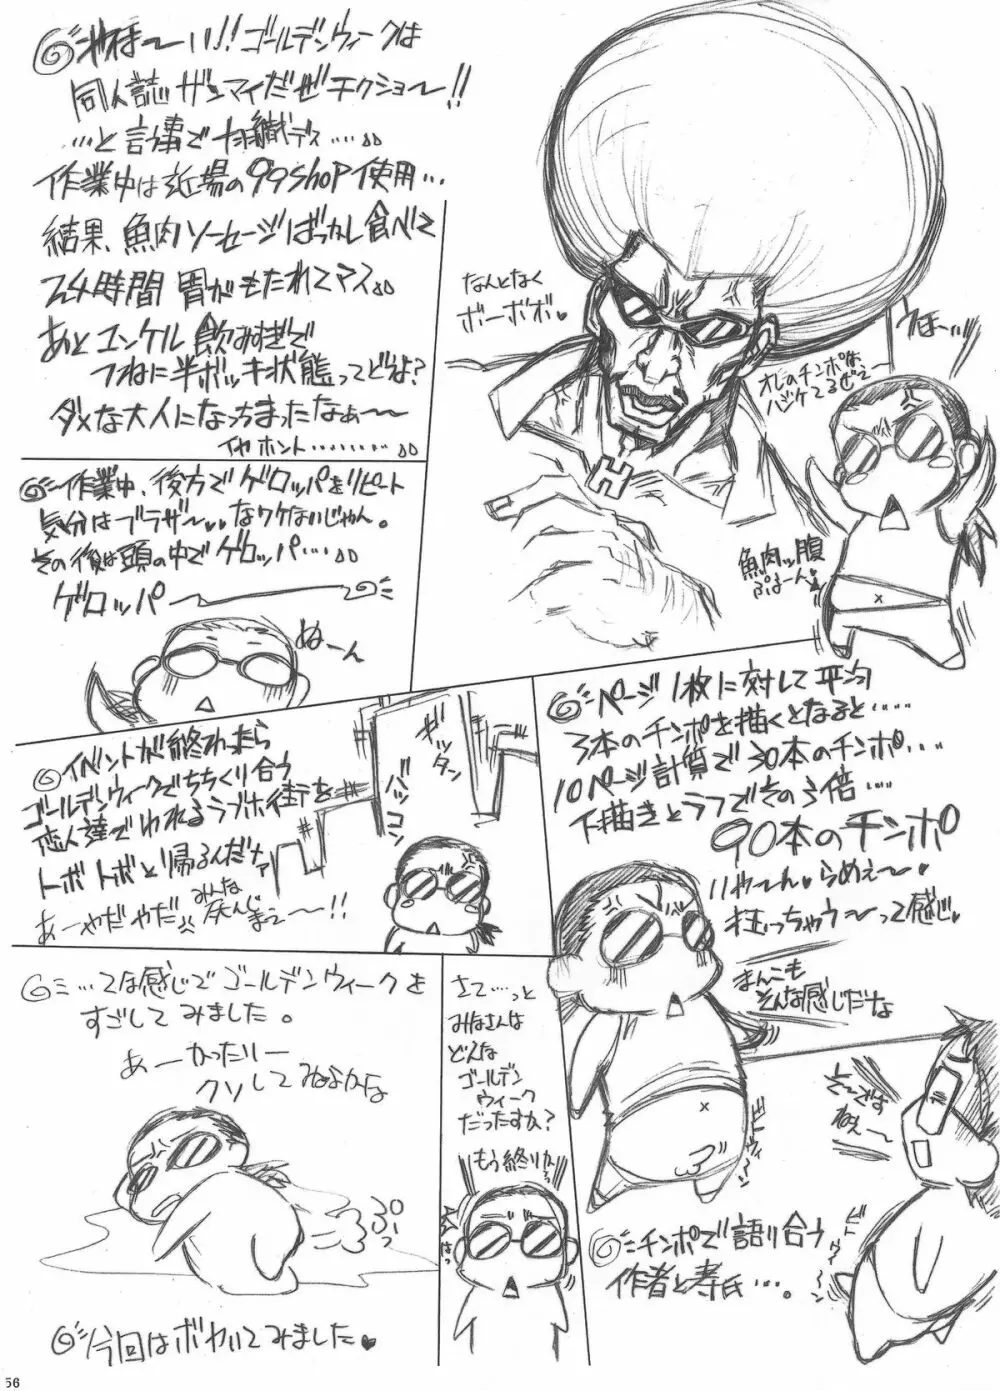 やほ〜い!!ゴールデンウィークは
同人誌ザンマイだぜチクショ〜!!
…と言う事で 羽織デス……
作業中は近場の99shop使用…
結果、魚肉ソーセージばっかし食べて
24時間 胃がもたれてマス
あとユンケル飲みすぎで
つねに半ボッキ状態ってどうよ?
ダメな大人になっちまったなぁ〜〜
イヤホント………
なんとなく
ボーボボ♥
うほー
オレのチンポは
ハジケてるぜぇ〜
魚肉ッ腹
ぷよーん♥
作業中、後方でゲロッパをリピート
気分はブラザ〜♥なワケないじゃん。
その後は頭の中でゲロッパ…
ゲロッパ
ぬーん
イベントが終わったら
ゴールデンウィークでちちくり合う
恋人達であふれるラブホ街を
トボトボと帰るんだナァ
あーやだやだ
みんな
死んじまえ〜〜!!
ギッタン
バッコン
ページ1枚に対して平均
3本のチンポを描くとなると……
10ページ計算で30本のチンポ…
下描きとラフでその3倍……
90本のチンポ
いや〜ん♥らめぇ〜♥
狂っちゃう〜って感じ♥
まんこも
そんな感じだな
そ〜ですねぇ〜
チンポで語り合う
作者と寿氏…。
…てな感じでゴールデンウィークを
すごしてみました。
あーかったりー
クソしてねよかな
ぷぅっ
今回はボヤいてみました♥
さて…っと
みなさんは
どんな
ゴールデン
ウィーク
だったすか?
もう終りかっ
56